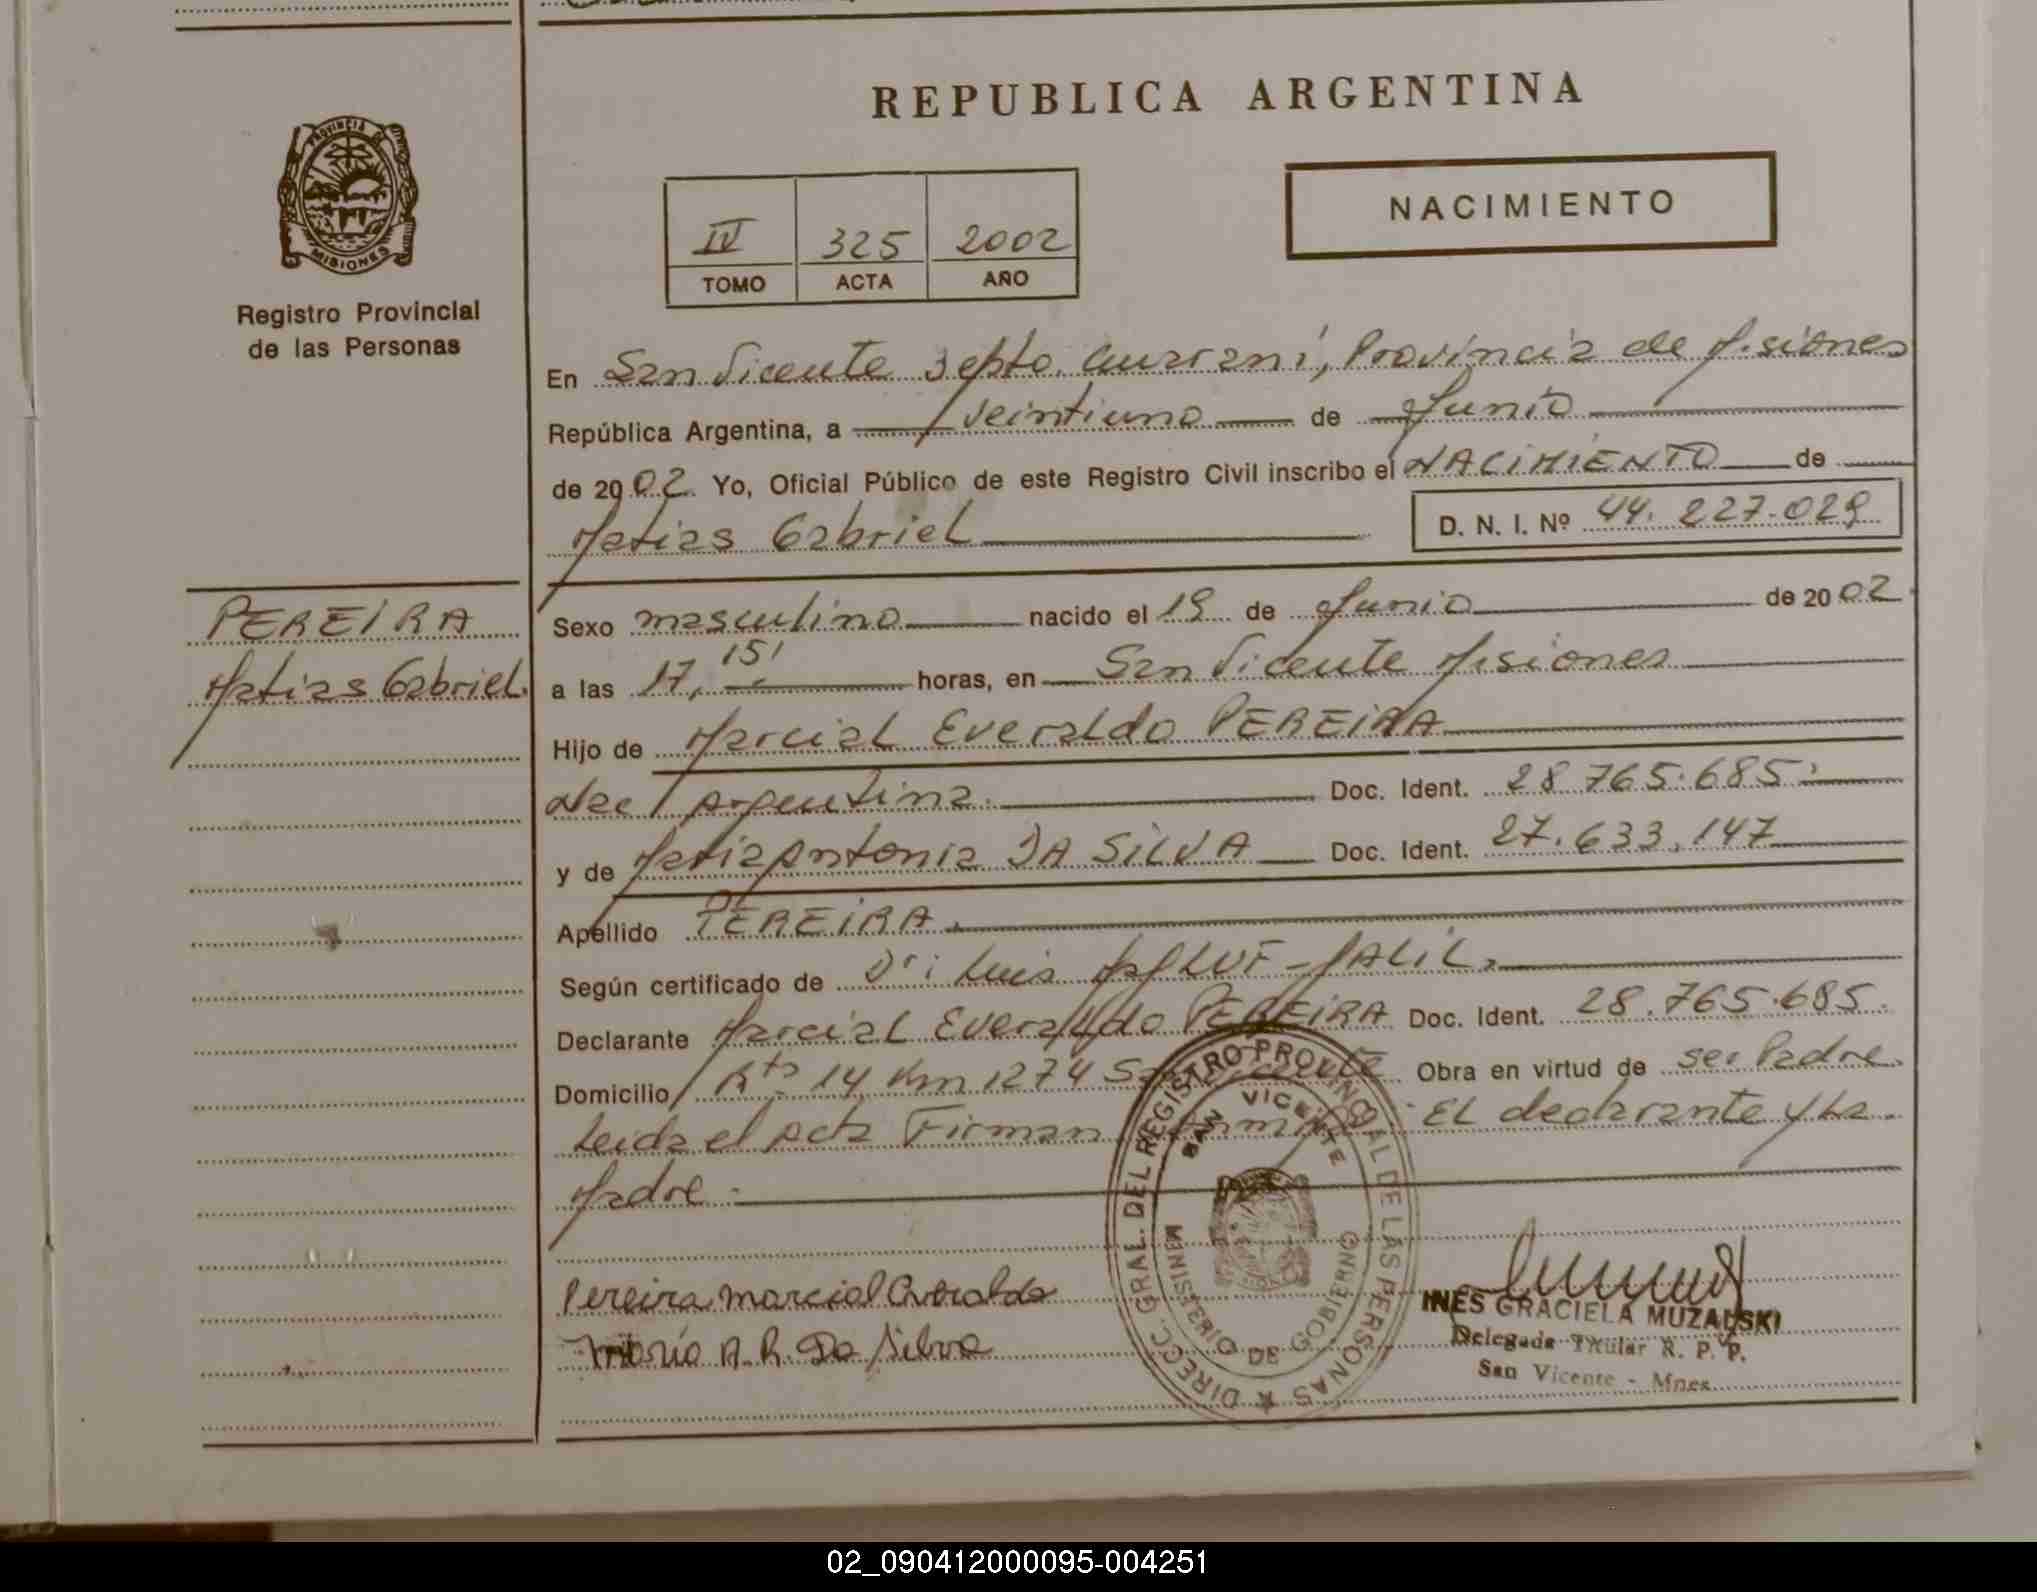 REPUBLICA ARGENTINA
PROVINCIA DE
MISIONES
Registro Provincial
de las Personas
IV 325 2002
TOMO ACTA AÑO
NACIMIENTO
En San Vicente Depto. Guarani, Provincia de Misiones
República Argentina, a veintiuno de Junio
de 2002 Yo, Oficial Público de este Registro Civil inscribo el NACIMIENTO de
Matias Gabriel
D. N. I. Nº 44.227.029
PEREIRA
Matias Gabriel.
Sexo masculino nacido el 19 de Junio de 2002
a las 17,15' horas, en San Vicente Misiones
Hijo de Marcial Everaldo PEREIRA
Nac Argentina. Doc. Ident. 28.765.685.
y de Maria Antonia DA SILVA Doc. Ident. 27.633.147
Apellido PEREIRA.
Según certificado de Dr: Luis
Declarante Marcial Everaldo PEREIRA Doc. Ident. 28.765.685.
Domicilio Rta 14 Km 1274 San Vicente Obra en virtud de ser Padre.
Leida el Acta Firman El declarante y La
Madre.
Pereira Marcial Everaldo
Maria A. R. Da Silva
DIRECC. GRAL. DEL REGISTRO PROVINCIAL DE LAS PERSONAS
SAN VICENTE
MINISTERIO DE GOBIERNO
INES GRACIELA MUZALSKI
Delegada Titular R. P. P.
San Vicente - Mnes.
02_090412000095-004251